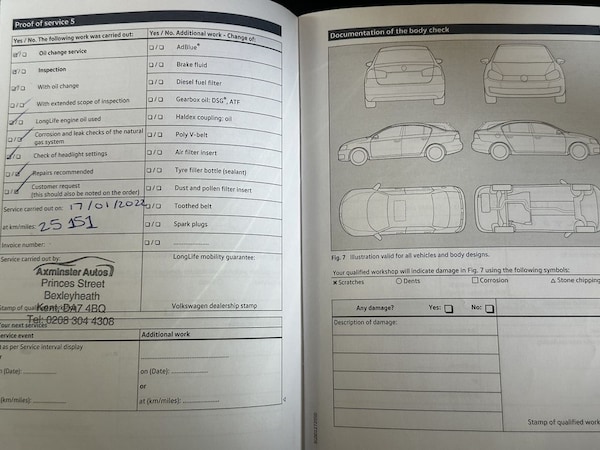 Proof of service 5
Yes / No. The following work was carried out:
Oil change service
Inspection
With oil change
With extended scope of inspection
LongLife engine oil used
Corrosion and leak checks of the natural
gas system
Check of headlight settings
Repairs recommended
Customer request
(this should also be noted on the order)
Service carried out on: 17/01/2022
at km/miles: 25 151
Invoice number:
Service carried out by:
Axminster Autos
Princes Street
Bexleyheath
Kent, DA7 4BQ
Tel: 0208 304 4308
Stamp of
Your next services
Service event
as per Service interval display
(Date):
(km/miles):
Yes / No. Additional work - Change of:
AdBlue®
Brake fluid
Diesel fuel filter
Gearbox oil: DSG®, ATF
Haldex coupling: oil
Poly V-belt
Air filter insert
Tyre filler bottle (sealant)
Dust and pollen filter insert
Toothed belt
Spark plugs
LongLife mobility guarantee:
Volkswagen dealership stamp
Additional work
on (Date):
or
at (km/miles):
Documentation of the body check
Fig. 7 Illustration valid for all vehicles and body designs.
Your qualified workshop will indicate damage in Fig. 7 using the following symbols:
× Scratches ○ Dents □ Corrosion △ Stone chipping
Any damage? Yes: No:
Description of damage:
Stamp of qualified work